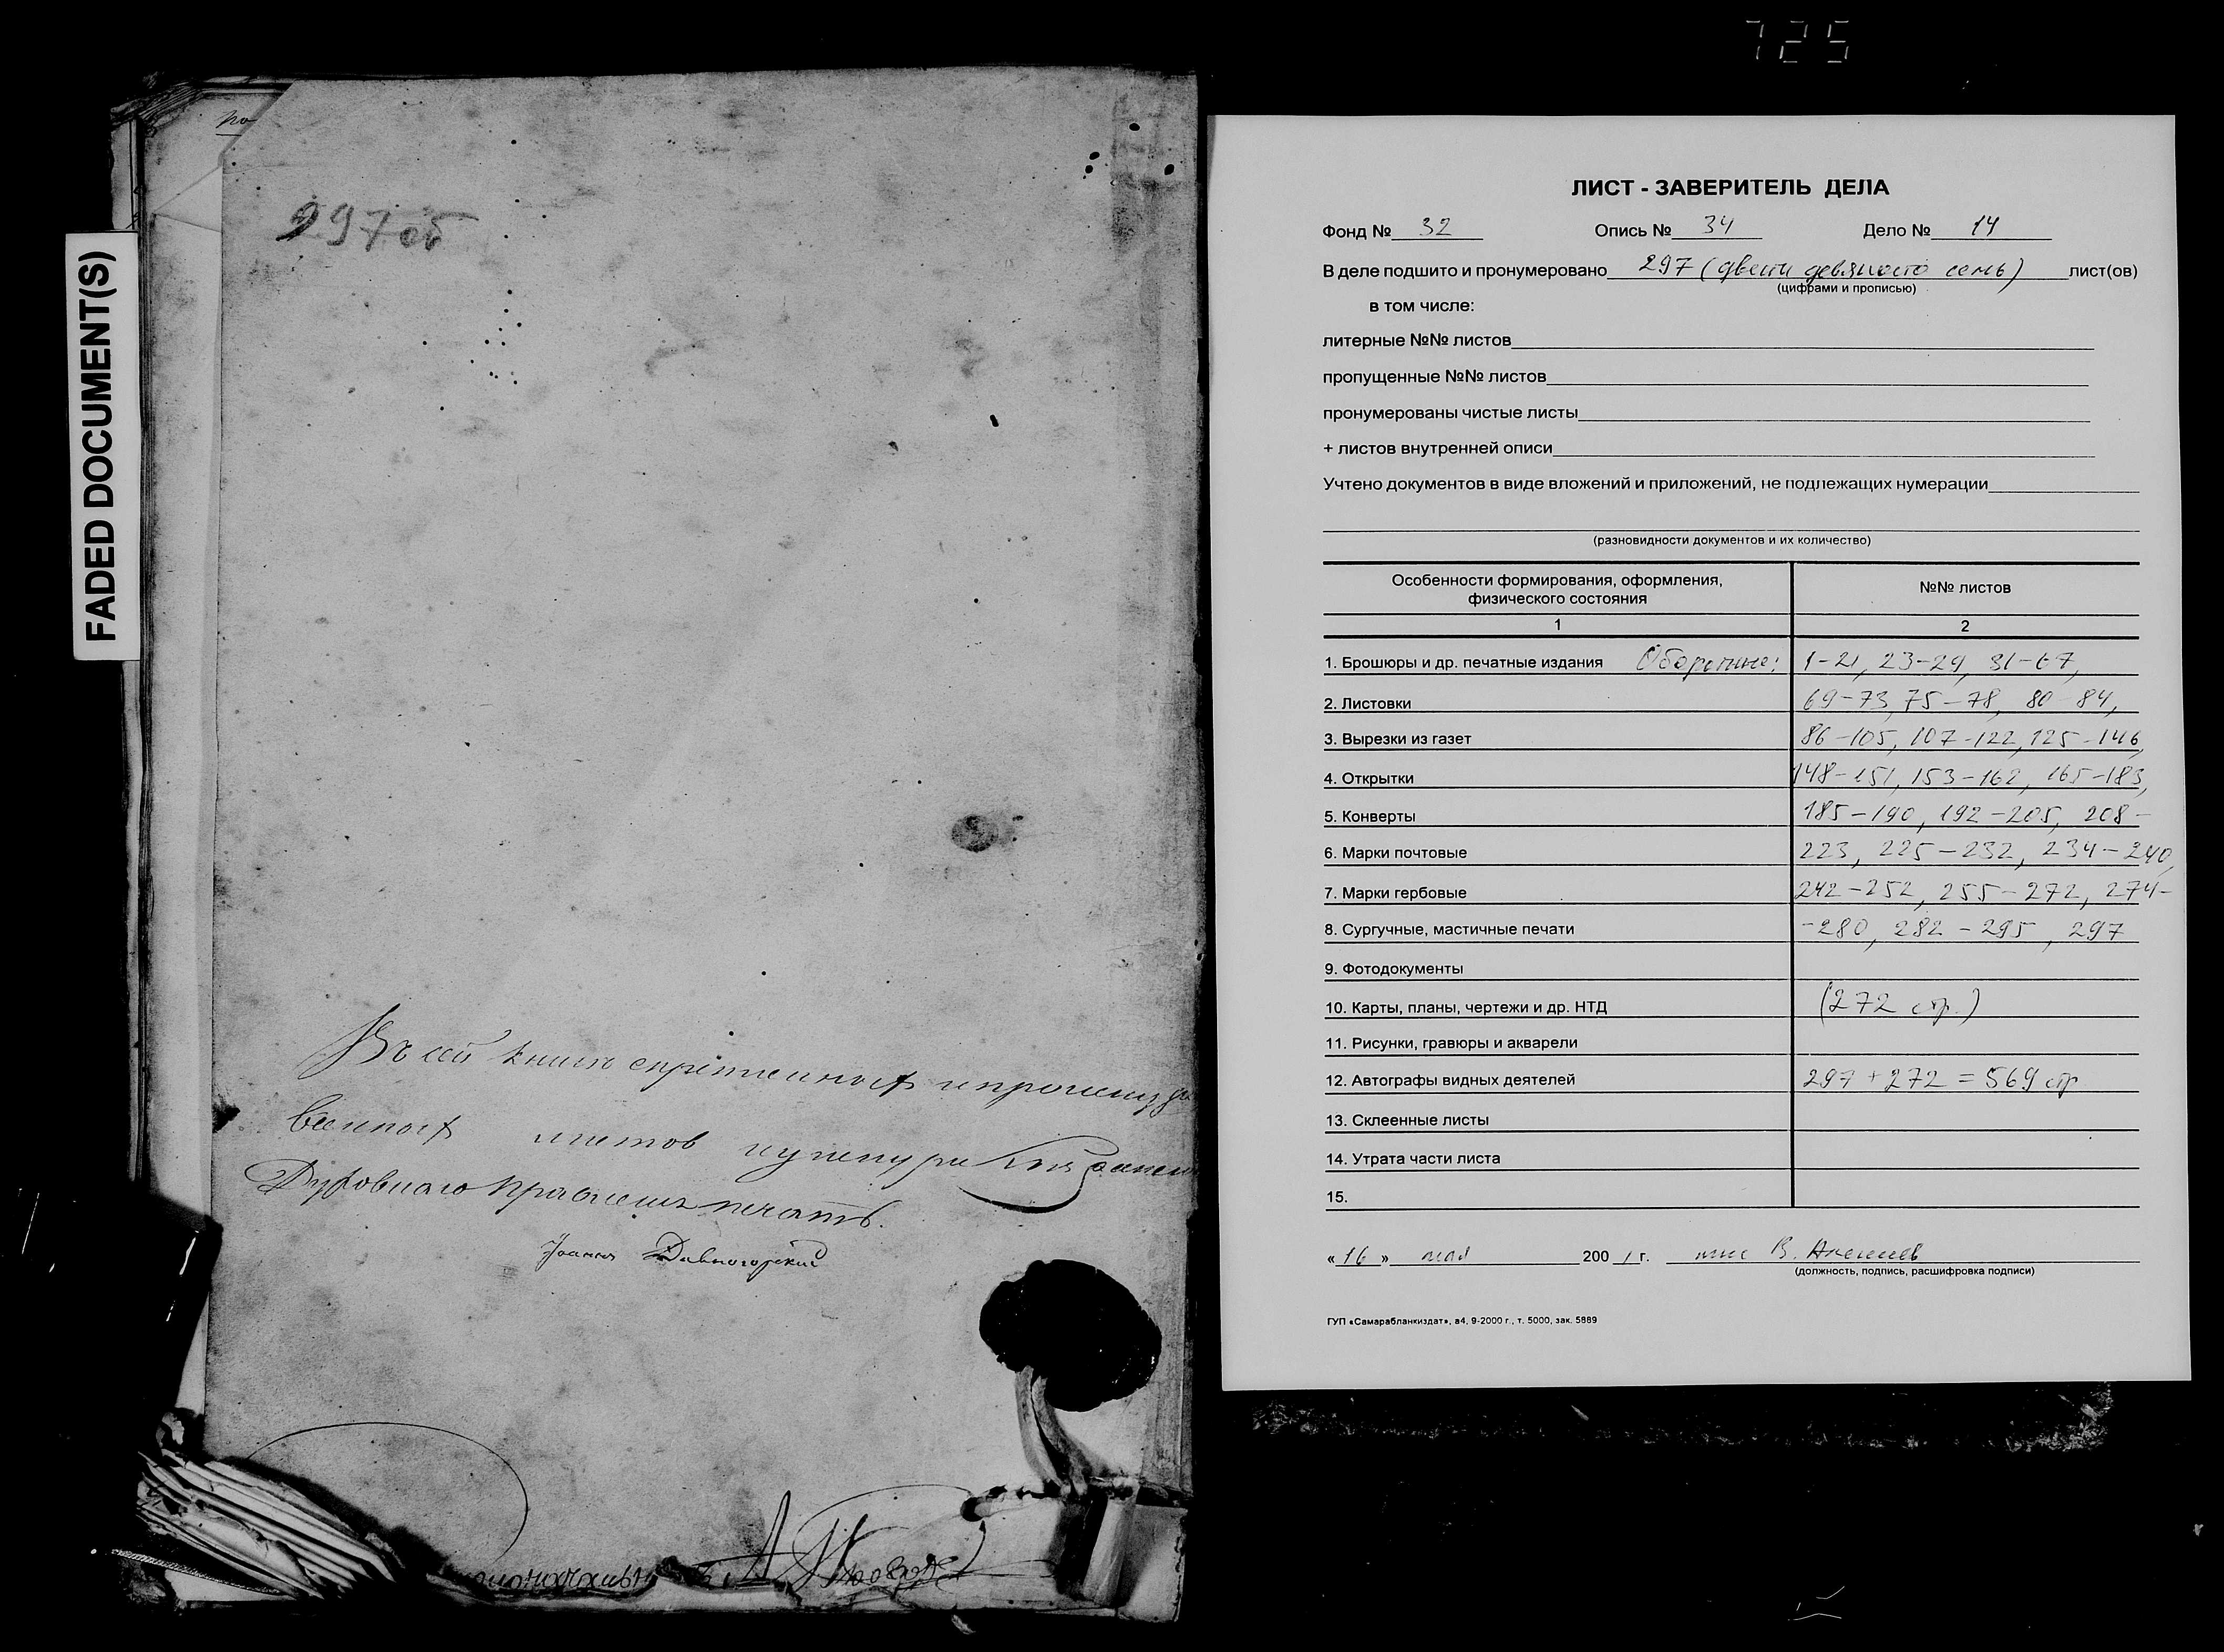 725
FADED DOCUMENT(S)
по
297 об
Въ сей книгѣ скрѣпленныхъ и пронумеро
ванныхъ листовъ
Духовнаго Правленія печать.
Іоаннъ Дивногорскій
ЛИСТ - ЗАВЕРИТЕЛЬ ДЕЛА
Фонд № 32 Опись № 34 Дело № 14
В деле подшито и пронумеровано 297 (двести девяносто семь) лист(ов)
(цифрами и прописью)
в том числе:
литерные №№ листов
пропущенные №№ листов
пронумерованы чистые листы
+ листов внутренней описи
Учтено документов в виде вложений и приложений, не подлежащих нумерации
(разновидности документов и их количество)
Особенности формирования, оформления,
физического состояния
№№ листов
1 2
1. Брошюры и др. печатные издания Оборотные: 1-21, 23-29, 31-67,
2. Листовки 69-73, 75-78, 80-84,
3. Вырезки из газет 86-105, 107-122, 125-146,
4. Открытки 148-151, 153-162, 165-183,
5. Конверты 185-190, 192-205, 208-
6. Марки почтовые 223, 225-232, 234-240,
7. Марки гербовые 242-252, 255-272, 274-
8. Сургучные, мастичные печати -280, 282-295, 297
9. Фотодокументы
10. Карты, планы, чертежи и др. НТД (272 стр.)
11. Рисунки, гравюры и акварели
12. Автографы видных деятелей 297 + 272 = 569 стр
13. Склеенные листы
14. Утрата части листа
15.
« 16 » мая 200 1 г. В.
(должность, подпись, расшифровка подписи)
ГУП «Самарабланкиздат», а4, 9-2000 г., т. 5000, зак. 5889